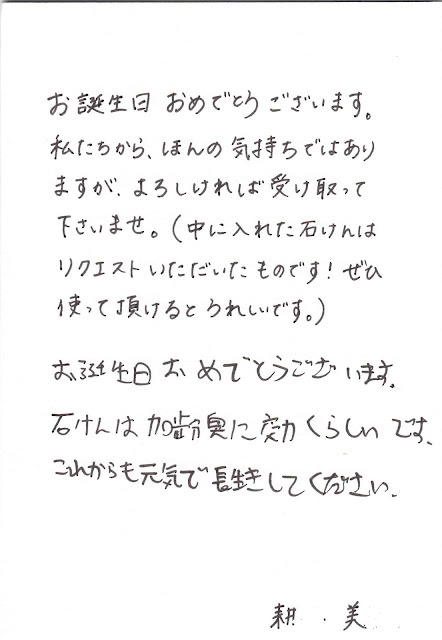 お誕生日 おめでとうございます。
私たちから、ほんの気持ちではあり
ますが、よろしければ受け取って
下さいませ。(中に入れた石けんは
リクエストいただいたものです！ぜひ
使って頂けるとうれしいです。)
お誕生日おめでとうございます。
石けんは加齢臭に効くらしいです、
これからも元気で長生きしてください。
耕 . 美